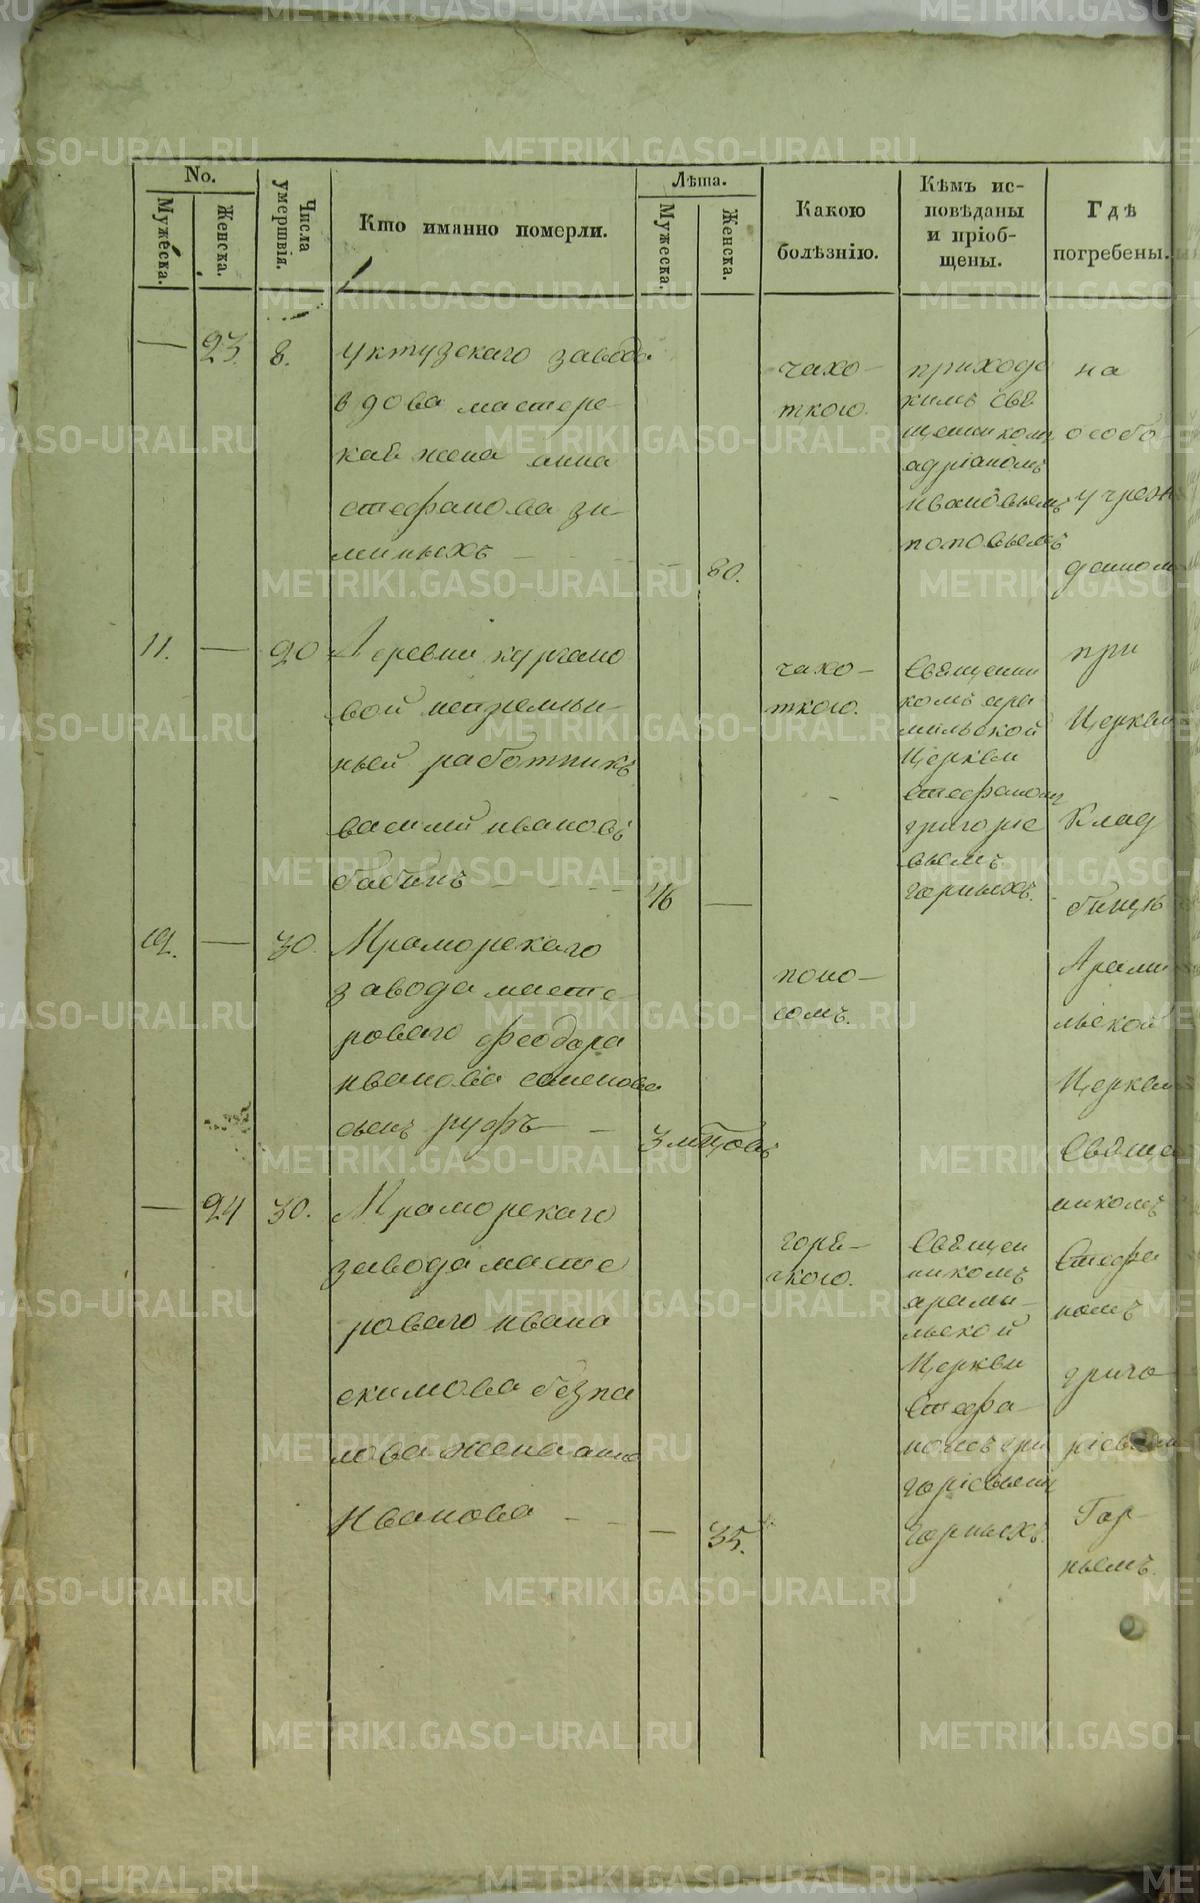 No.
Мужеска.
Женска.
Числа умершвія.
Кто иманно померли.
Лѣта.
Мужеска.
Женска.
Какою
болѣзнію.
Кѣмъ ис-
повѣданы
и пріоб-
щены.
Гдѣ
погребены.
— 23. 8.
уктузскаго завода
вдова мастерс
кая жена анна
стефанова зи
миныхъ
80.
чахо-
ткою.
приходс
кимъ свя
щенникомъ
адріаномъ
ивановымъ
поповымъ
на
особо
учреж
деном
11. — 20
Деревни кургано
вой непремѣн
ный работникъ
василий ивановъ
бабинъ
46 —
чахо-
ткою.
Священни
комъ ара
мильской
Церкви
стефаномъ
григоріе
вымъ
горныхъ.
при
Церкви
Клад
бищѣ
12. — 30.
Мраморскаго
завода масте
роваго феодора
иванова семенова
сынъ руфъ —
3 мѣцовъ
поно-
сомъ.
Арами
льской
Церкви
Священ
никомъ
Стефа
номъ
григо
ріевым
Гор-
нымъ.
— 24 30.
Мраморскаго
завода масте
роваго ивана
екимова безпа
лова жена анна
Иванова
— 35.
горя-
чкою.
Священ
никомъ
арами-
льской
Церкви
Стефа-
номъ гри
горіевымъ
горныхъ.
METRIKI.GASO-URAL.RU